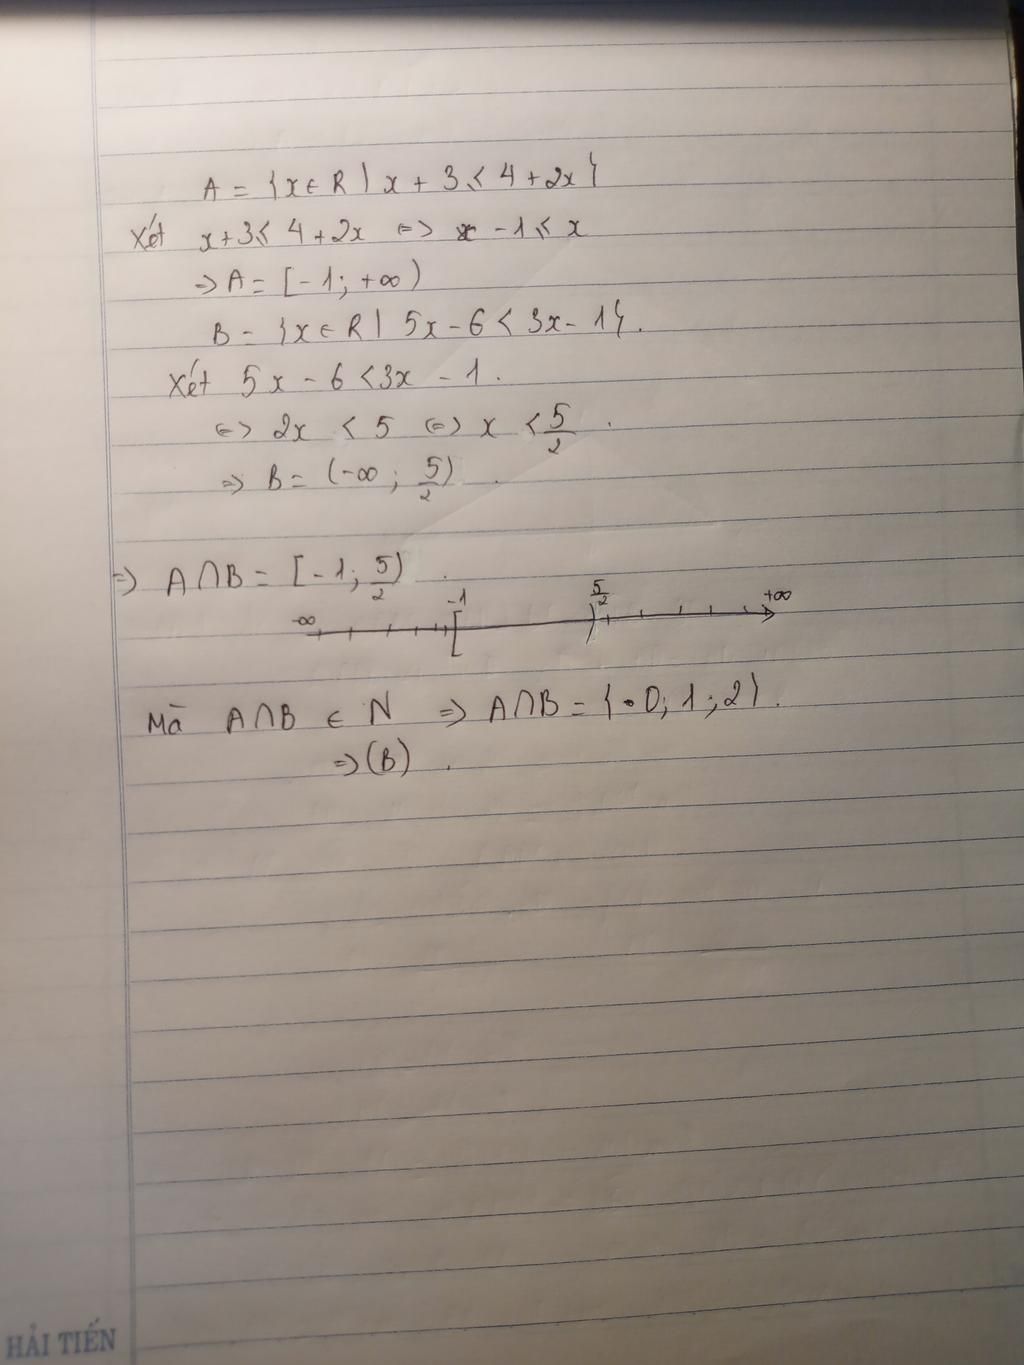 A = {x ∈ R | x + 3 ≤ 4 + 2x}
Xét x+3 ≤ 4+2x ⇔ -1 ≤ x
⇒ A = [-1; +∞)
B = {x ∈ R | 5x - 6 < 3x - 1}.
Xét 5x - 6 < 3x - 1.
⇔ 2x < 5 ⇔ x < 5/2.
⇒ B = (-∞; 5/2).
⇒ A∩B = [-1; 5/2).
-∞ -1 5/2 +∞
Mà A∩B ∈ N ⇒ A∩B = {0; 1; 2}.
⇒ (B).
HẢI TIẾN